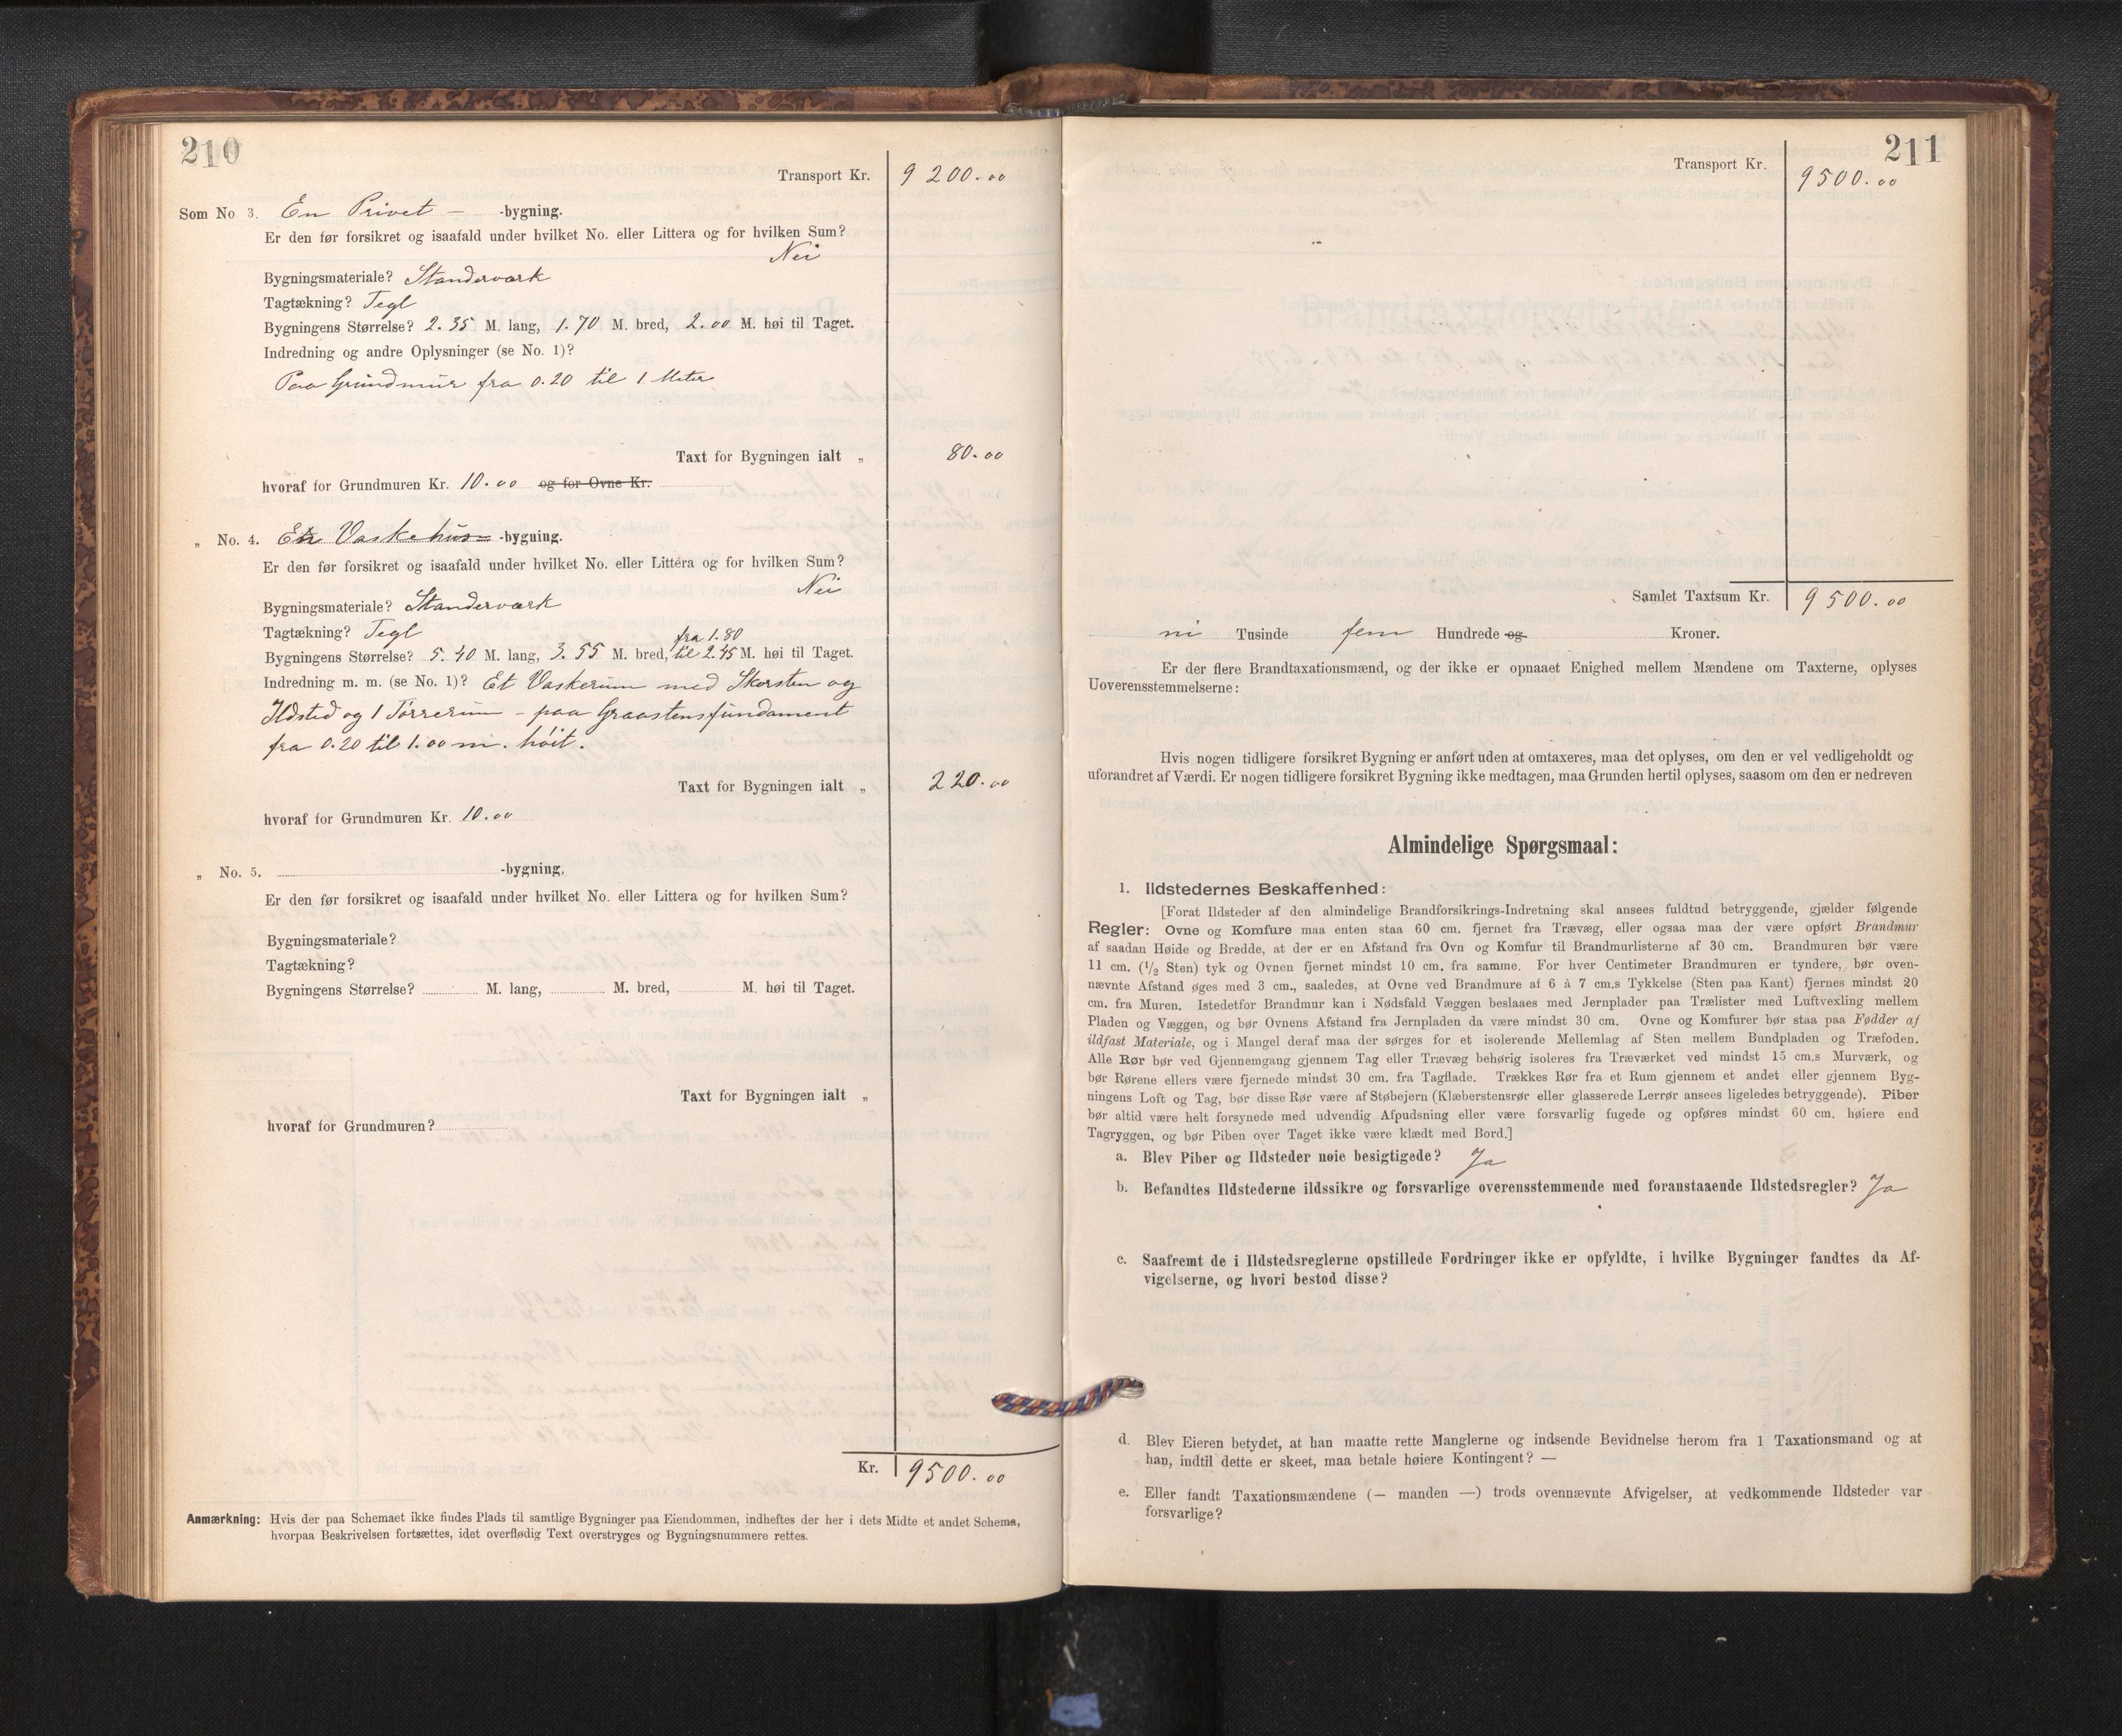 210
Transport Kr. 9 200.00
Som No. 3. En Privet — -bygning.
Er den før forsikret og isaafald under hvilket No. eller Littera og for hvilken Sum?
Nei
Bygningsmateriale? Standerværk
Tagtækning? Tegl
Bygningens Størrelse? 2.35 M. lang, 1.70 M. bred, 2.00 M. høi til Taget.
Indredning og andre Oplysninger (se No. 1)?
Paa Grundmur fra 0.20 til 1 Meter
Taxt for Bygningen ialt „ 80.00
hvoraf for Grundmuren Kr. 10.00 og for Ovne Kr.
„ No. 4. Et Vaskehus= -bygning.
Er den før forsikret og isaafald under hvilket No. eller Littera og for hvilken Sum?
Nei
Bygningsmateriale? Standerværk
Tagtækning? Tegl
fra 1.80
Bygningens Størrelse? 5.40 M. lang, 3.55 M. bred, til 2.45 M. høi til Taget.
Indredning m. m. (se No. 1)? Et Vaskerum med Skorsten og
Ildsted og 1 Tørrerum – paa Graastensfundament
fra 0.20 til 1.00 m. høit.
Taxt for Bygningen ialt „ 220.00
hvoraf for Grundmuren Kr. 10.00
„ No. 5. -bygning,
Er den før forsikret og isaafald under hvilket No. eller Littera og for hvilken Sum?
Bygningsmateriale?
Tagtækning?
Bygningens Størrelse? M. lang, M. bred, M. høi til Taget.
Taxt for Bygningen ialt „
hvoraf for Grundmuren?
Kr. 9500.00
Anmærkning: Hvis der paa Schemaet ikke findes Plads til samtlige Bygninger paa Eiendommen, indheftes der her i dets Midte et andet Schema,
hvorpaa Beskrivelsen fortsættes, idet overflødig Text overstryges og Bygningsnummere rettes.
211
Transport Kr. 9500.00
Samlet Taxtsum Kr. 9500.00
ni Tusinde fem Hundrede og Kroner.
Er der flere Brandtaxationsmænd, og der ikke er opnaaet Enighed mellem Mændene om Taxterne, oplyses
Uoverensstemmelserne:
Hvis nogen tidligere forsikret Bygning er anført uden at omtaxeres, maa det oplyses, om den er vel vedligeholdt og
uforandret af Værdi. Er nogen tidligere forsikret Bygning ikke medtagen, maa Grunden hertil oplyses, saasom om den er nedreven
Almindelige Spørgsmaal:
1. Ildstedernes Beskaffenhed:
[Forat Ildsteder af den almindelige Brandforsikrings-Indretning skal ansees fuldtud betryggende, gjælder følgende
Regler: Ovne og Komfure maa enten staa 60 cm. fjernet fra Trævæg, eller ogsaa maa der være opført Brandmur
af saadan Høide og Bredde, at der er en Afstand fra Ovn og Komfur til Brandmurlisterne af 30 cm. Brandmuren bør være
11 cm. (1/2 Sten) tyk og Ovnen fjernet mindst 10 cm. fra samme. For hver Centimeter Brandmuren er tyndere, bør oven-
nævnte Afstand øges med 3 cm., saaledes, at Ovne ved Brandmure af 6 à 7 cm.s Tykkelse (Sten paa Kant) fjernes mindst 20
cm. fra Muren. Istedetfor Brandmur kan i Nødsfald Væggen beslaaes med Jernplader paa Trælister med Luftvexling mellem
Pladen og Væggen, og bør Ovnens Afstand fra Jernpladen da være mindst 30 cm. Ovne og Komfurer bør staa paa Fødder af
ildfast Materiale, og i Mangel deraf maa der sørges for et isolerende Mellemlag af Sten mellem Bundpladen og Træfoden.
Alle Rør bør ved Gjennemgang gjennem Tag eller Trævæg behørig isoleres fra Træværket ved mindst 15 cm.s Murværk, og
bør Rørene ellers være fjernede mindst 30 cm. fra Tagflade. Trækkes Rør fra et Rum gjennem et andet eller gjennem Byg-
ningens Loft og Tag, bør disse Rør være af Støbejern (Klæberstensrør eller glasserede Lerrør ansees ligeledes betryggende). Piber
bør altid være helt forsynede med udvendig Afpudsning eller være forsvarlig fugede og opføres mindst 60 cm. høiere end
Tagryggen, og bør Piben over Taget ikke være klædt med Bord.]
a. Blev Piber og Ildsteder nøie besigtigede? Ja
b. Befandtes Ildstederne ildssikre og forsvarlige overensstemmende med foranstaaende Ildstedsregler? Ja
c. Saafremt de i Ildstedsreglerne opstillede Fordringer ikke er opfyldte, i hvilke Bygninger fandtes da Af-
vigelserne, og hvori bestod disse?
d. Blev Eieren betydet, at han maatte rette Manglerne og indsende Bevidnelse herom fra 1 Taxationsmand og at
han, indtil dette er skeet, maa betale høiere Kontingent? —
e. Eller fandt Taxationsmændene (— manden —) trods ovennævnte Afvigelser, at vedkommende Ildsteder var
forsvarlige?